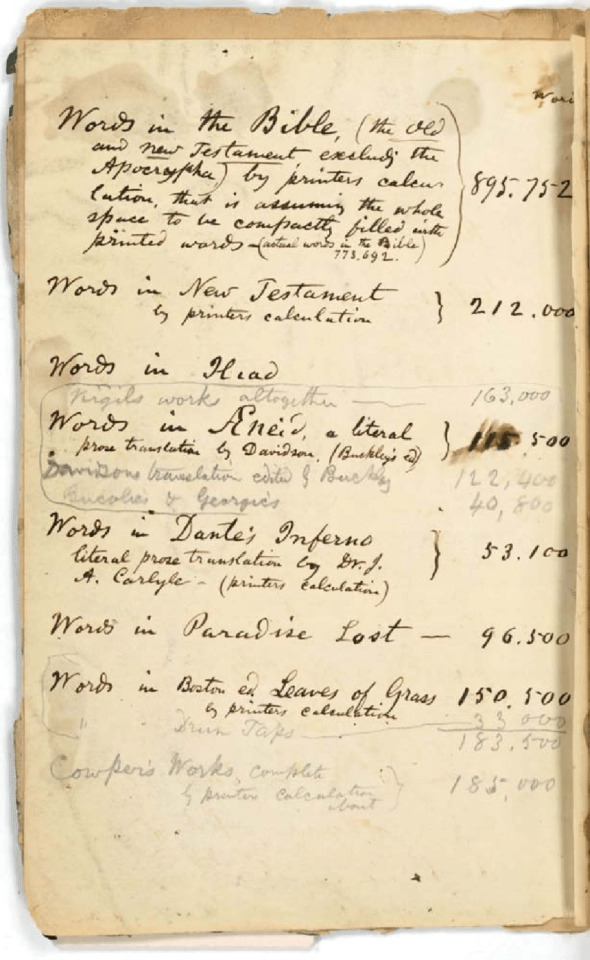 Words in the Bible, (the old
and new Testament excludg the
Apocrypha) by printers calcu-
lation, that is assuming the whole
space to be compactly filled with
printed words — (actual words in the Bible)
773.692.
895.752
Words in New Testament
by printers calculation } 212.000
Words in Iliad
Virgils works altogether — 163,000
Words in Æneid, a literal
prose translation by Davidson. (Buckley's ed) } 115.500
Davidsons translation edited by Buckley 122,400
Bucolics & Georgics 40,800
Words in Dante's Inferno
literal prose translation by Dr. J.
A. Carlyle – (printers calculation) } 53.100
Words in Paradise Lost — 96.500
Words in Boston ed. Leaves of Grass 150.500
by printers calculation
" Drum Taps — 33 000
183.500
Cowper's Works, complete
by printers calculation } 185,000
about